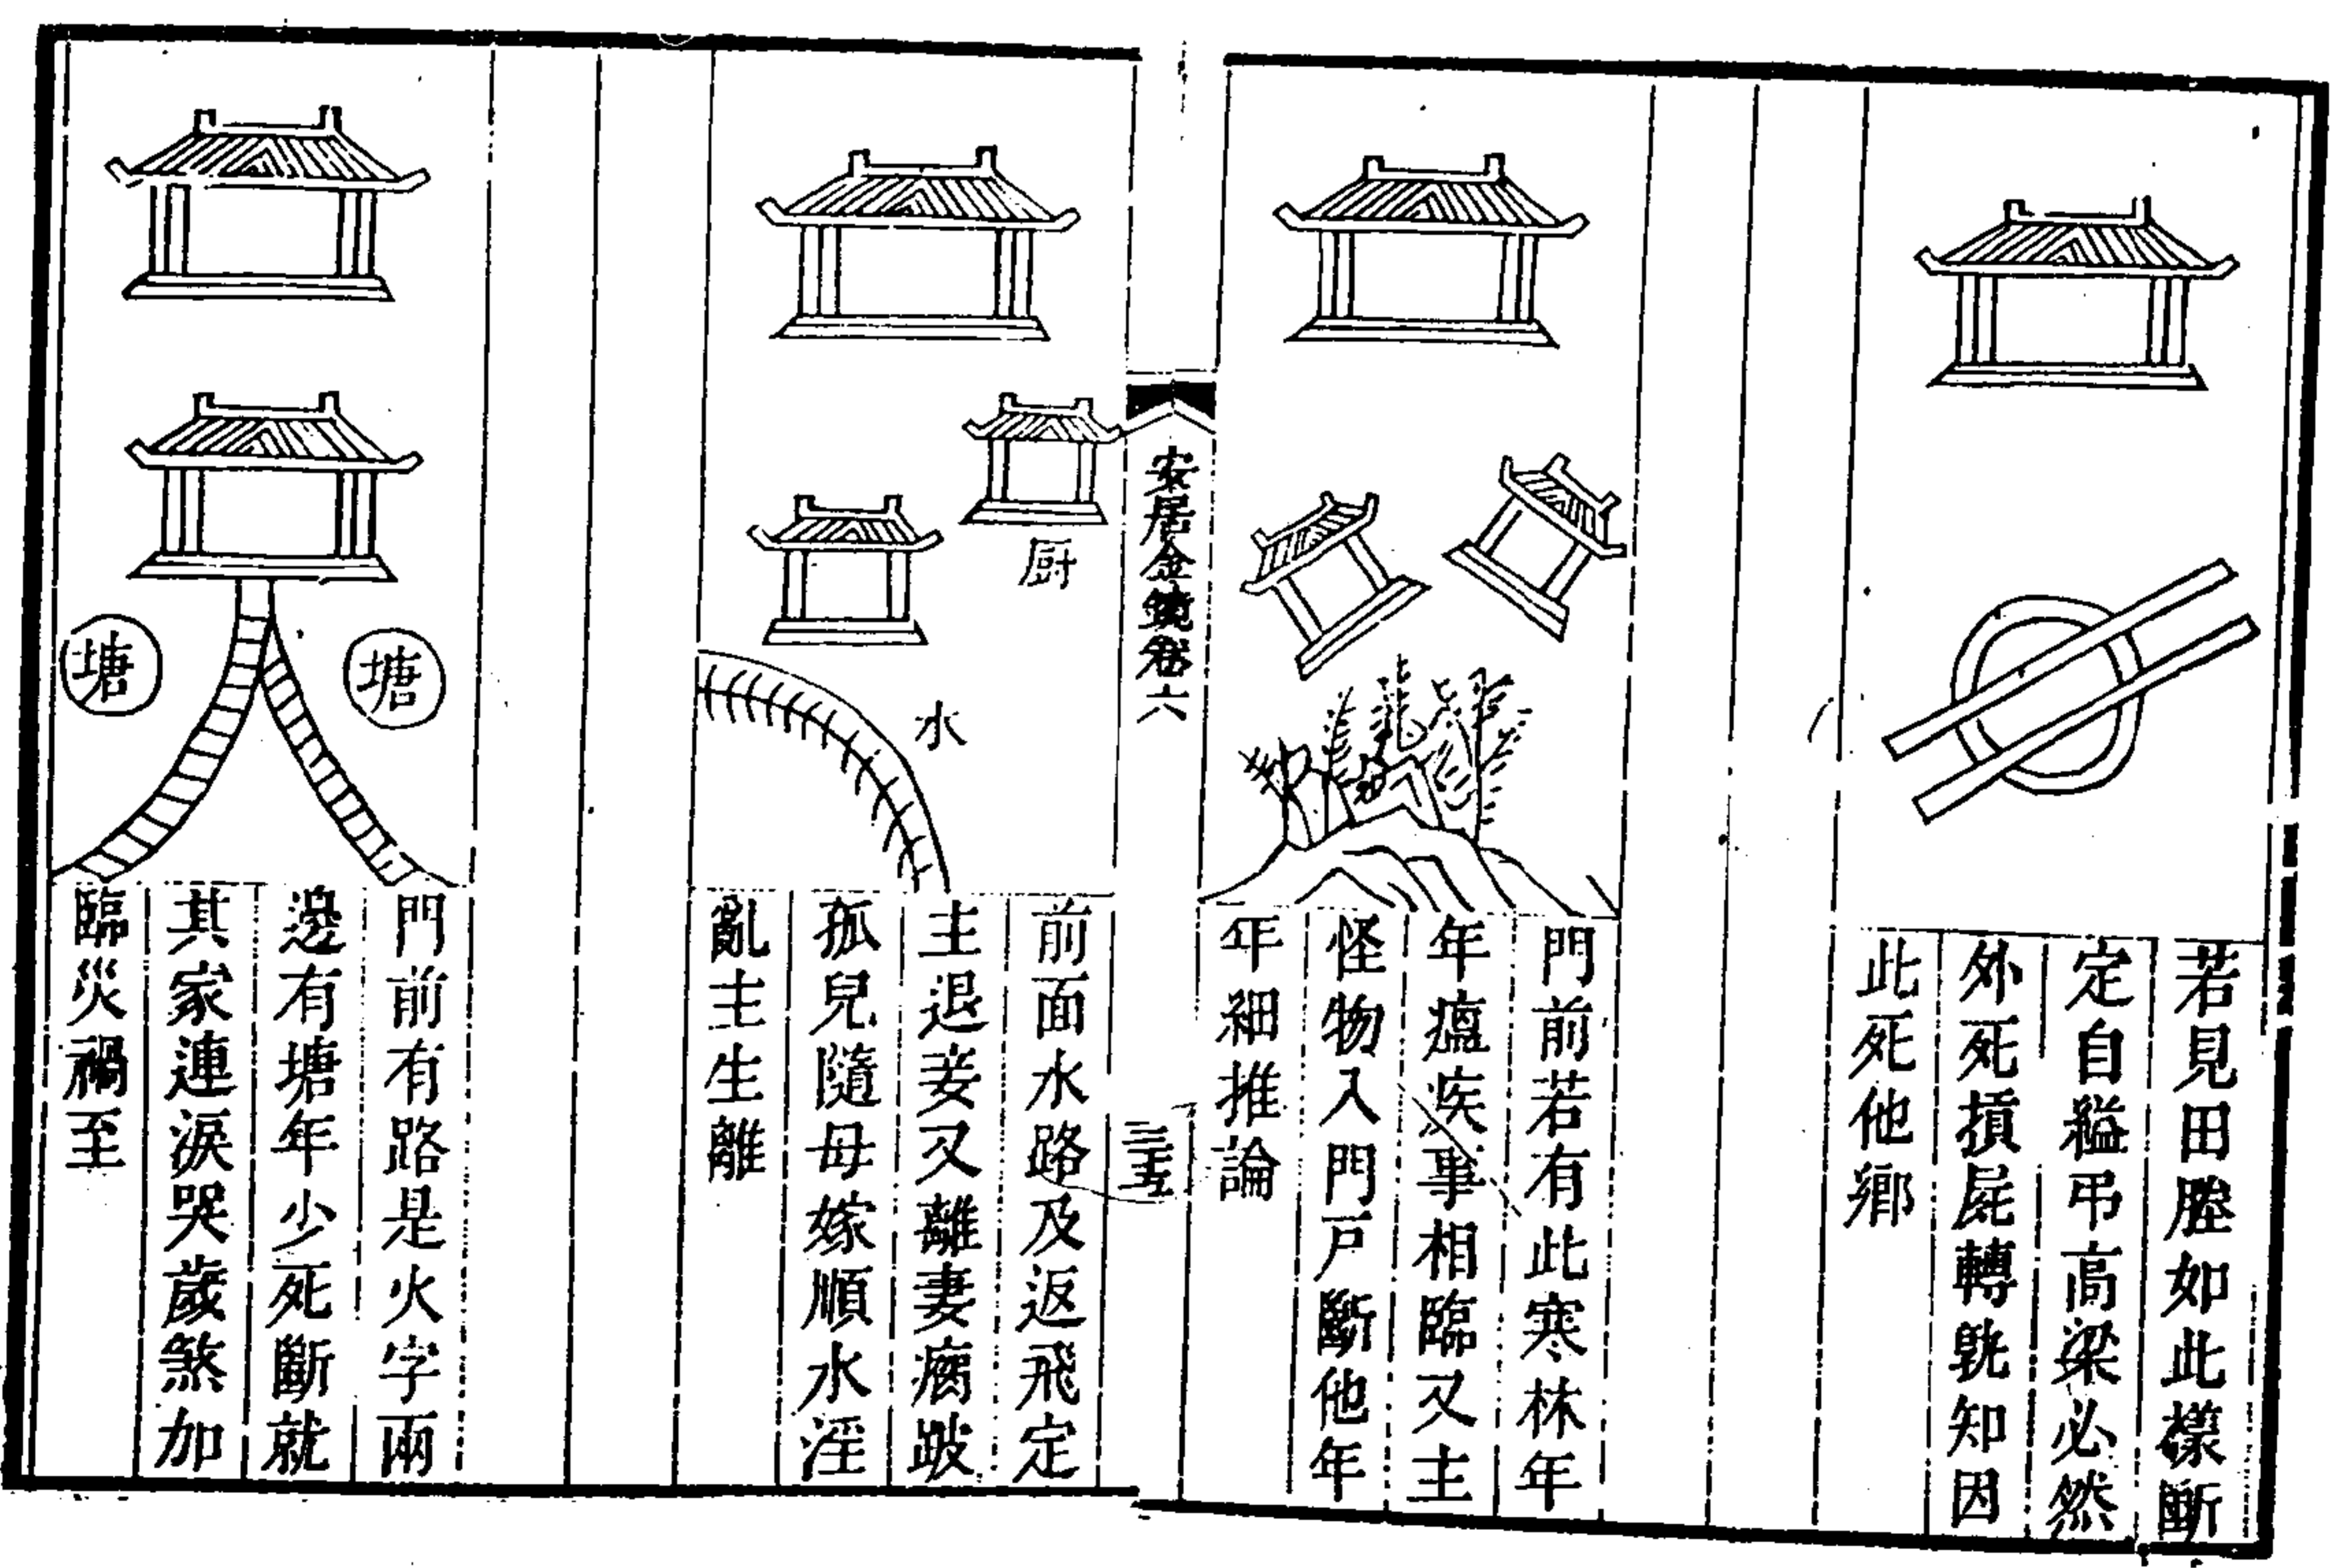 若見田塍如此樣斷
定自縊弔高梁必然
外死摃屍轉魂知因
此死他鄉
門前若有此寒林年
年瘟疾事相臨又主
怪物入門戸斷他年
年細推論
安居金鏡卷六
三十五
厨
水
前面水路及返飛定
主退妾又離妻癘跛
孤兒隨母嫁順水淫
亂主生離
塘
塘
門前有路是火字兩
邊有塘年少死斷就
其家連淚哭歲煞加
臨災禍至